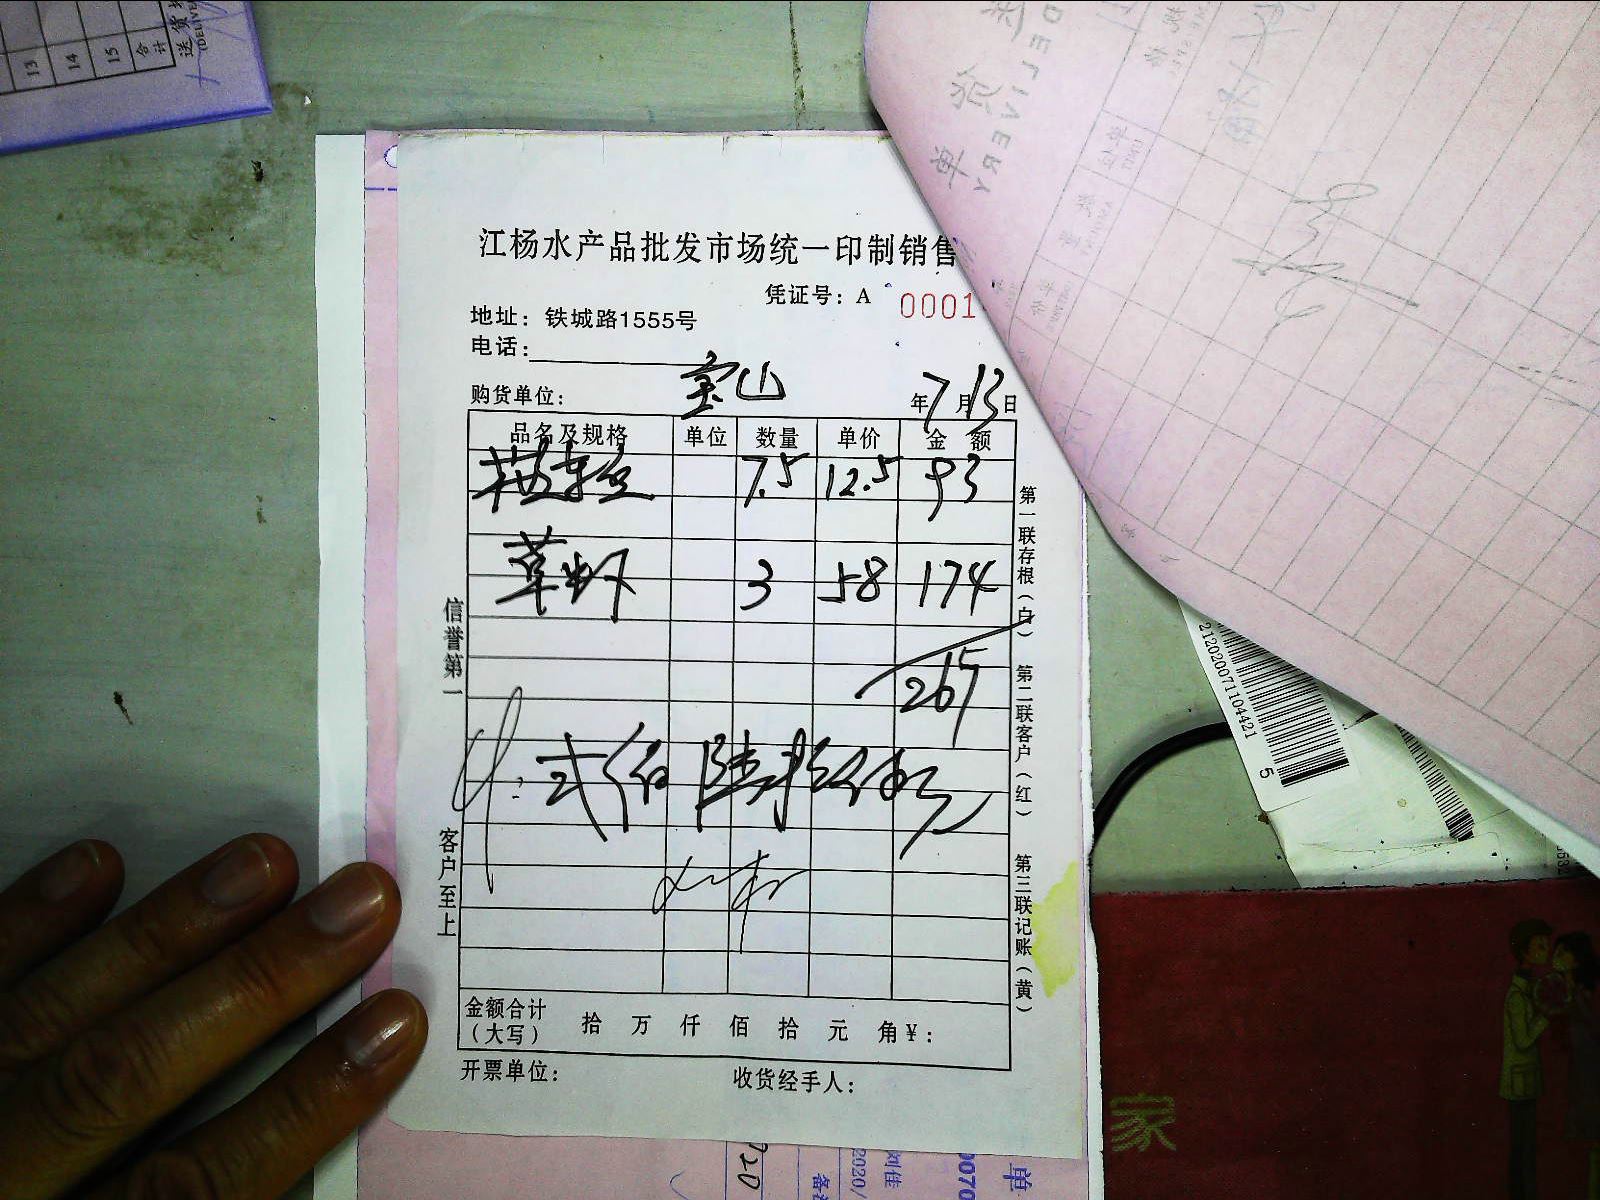 江杨水产品批发市场统一印制销售
凭证号：A 0001
地址：铁城路1555号
电话：
购货单位： 宝山 年7月13日
品名及规格 单位 数量 单价 金额
7.5 12.5 93
草虾 3 58 174
267
式佰陆拾
金额合计
（大写） 拾 万 仟 佰 拾 元 角 ¥：
开票单位： 收货经手人：
信誉第一
客户至上
第一联存根（白）
第二联客户（红）
第三联记账（黄）
13
14
15
合计
送货
DELIVERY
2120200711044215
家
720
2020/
刘佳
0070
单